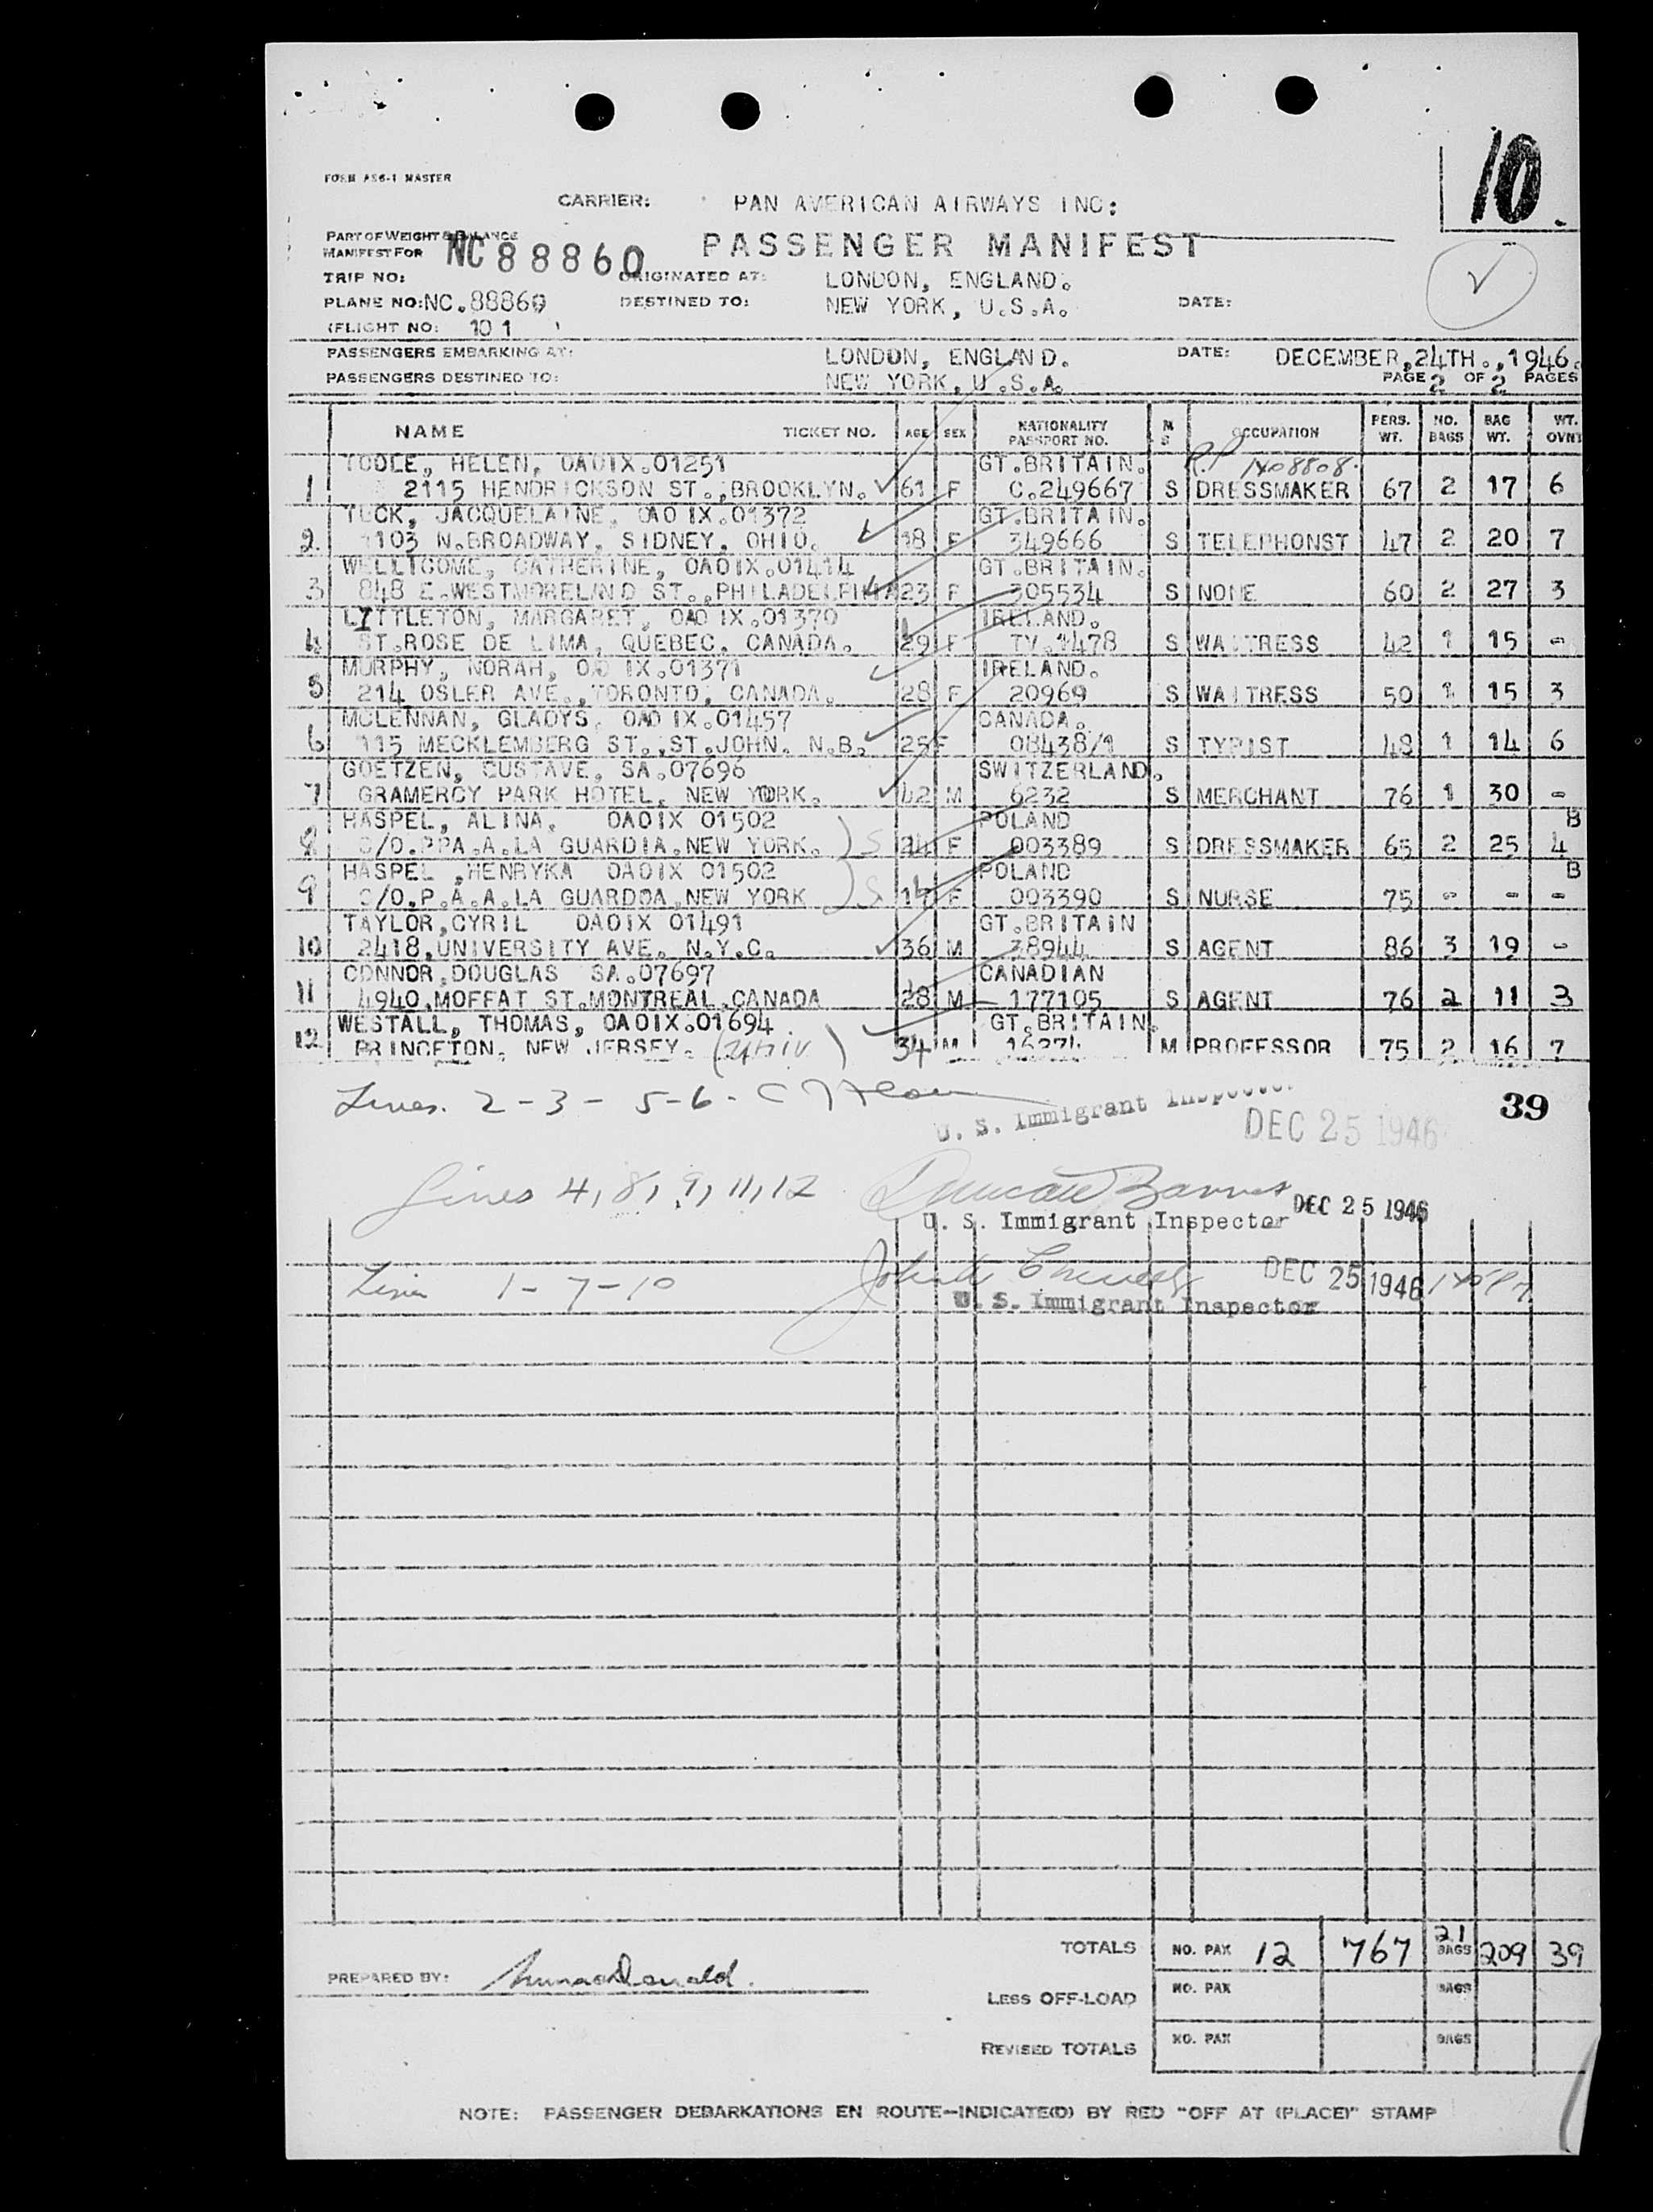 FORM AS6-1 MASTER
10.
CARRIER: PAN AMERICAN AIRWAYS INC:
PART OF WEIGHT & BALANCE
MANIFEST FOR NC 88860 PASSENGER MANIFEST
TRIP NO: ORIGINATED AT: LONDON, ENGLAND.
PLANE NO: NC.88860 DESTINED TO: NEW YORK, U.S.A. DATE:
(FLIGHT NO: 101
PASSENGERS EMBARKING AT: LONDON, ENGLAND. DATE: DECEMBER,24TH.,1946.
PASSENGERS DESTINED TO: NEW YORK, U.S.A. PAGE 2 OF 2 PAGES
NAME TICKET NO. AGE SEX NATIONALITY PASSPORT NO. M S OCCUPATION PERS. WT. NO. BAGS BAG WT. WT. OVNT
TOOLE, HELEN, OAOIX.01251 GT.BRITAIN. R.P 1408808.
1 2115 HENDRICKSON ST.,BROOKLYN. 61 F C.249667 S DRESSMAKER 67 2 17 6
TUCK, JACQUELAINE, OAOIX.01372 GT.BRITAIN.
2. 1103 N.BROADWAY, SIDNEY, OHIO. 18 F 349666 S TELEPHONST 47 2 20 7
WELLTCOME, CATHERINE, OAOIX.01414 GT.BRITAIN.
3 848 E.WESTMORELND ST.,PHILADELPHIA 23 F 305534 S NONE 60 2 27 3
LYTTLETON, MARGARET, OAOIX.01370 IRELAND.
4 ST.ROSE DE LIMA, QUEBEC, CANADA. 29 F TY.1478 S WAITRESS 42 1 15 -
MURPHY, NORAH, OAOIX.01371 IRELAND.
5 214 OSLER AVE.,TORONTO, CANADA. 28 F 20969 S WAITRESS 50 1 15 3
MCLENNAN, GLADYS, OAOIX.01457 CANADA.
6 115 MECKLEMBERG ST.,ST.JOHN. N.B. 25 F 08438/1 S TYPIST 48 1 14 6
GOETZEN, GUSTAVE, SA.07696 SWITZERLAND.
7 GRAMERCY PARK HOTEL, NEW YORK. 42 M 6232 S MERCHANT 76 1 30 -
HASPEL, ALINA, OAOIX 01502 POLAND B
8 C/O.PPA.A.LA GUARDIA,NEW YORK. S 24 F 003389 S DRESSMAKER 65 2 25 4
HASPEL ,HENRYKA OAOIX 01502 POLAND B
9 C/O.P.A.A.LA GUARDOA,NEW YORK S 17 F 003390 S NURSE 75 - - -
TAYLOR,CYRIL OAOIX 01491 GT.BRITAIN
10 2418,UNIVERSITY AVE. N.Y.C. 36 M 38944 S AGENT 86 3 19 -
CONNOR,DOUGLAS SA.07697 CANADIAN
11 4940,MOFFAT ST.MONTREAL,CANADA 28 M 177105 S AGENT 76 2 11 3
WESTALL, THOMAS, OAOIX.01694 GT.BRITAIN.
12 PRINCETON, NEW JERSEY. 34 M 16274 M PROFESSOR 75 2 16 7
Lines. 2-3- 5-6-
U. S. Immigrant Inspector 39
DEC 25 1946
Lines 4, 8, 9, 11, 12 Duncan Barnes DEC 25 1946
U. S. Immigrant Inspector
Line 1-7-10 DEC 25 1946
U. S. Immigrant Inspector
TOTALS NO. PAX 12 767 21 BAGS 209 39
PREPARED BY:
LESS OFF-LOAD NO. PAX BAGS
REVISED TOTALS NO. PAX BAGS
NOTE: PASSENGER DEBARKATIONS EN ROUTE—INDICATE(D) BY RED "OFF AT (PLACE)" STAMP